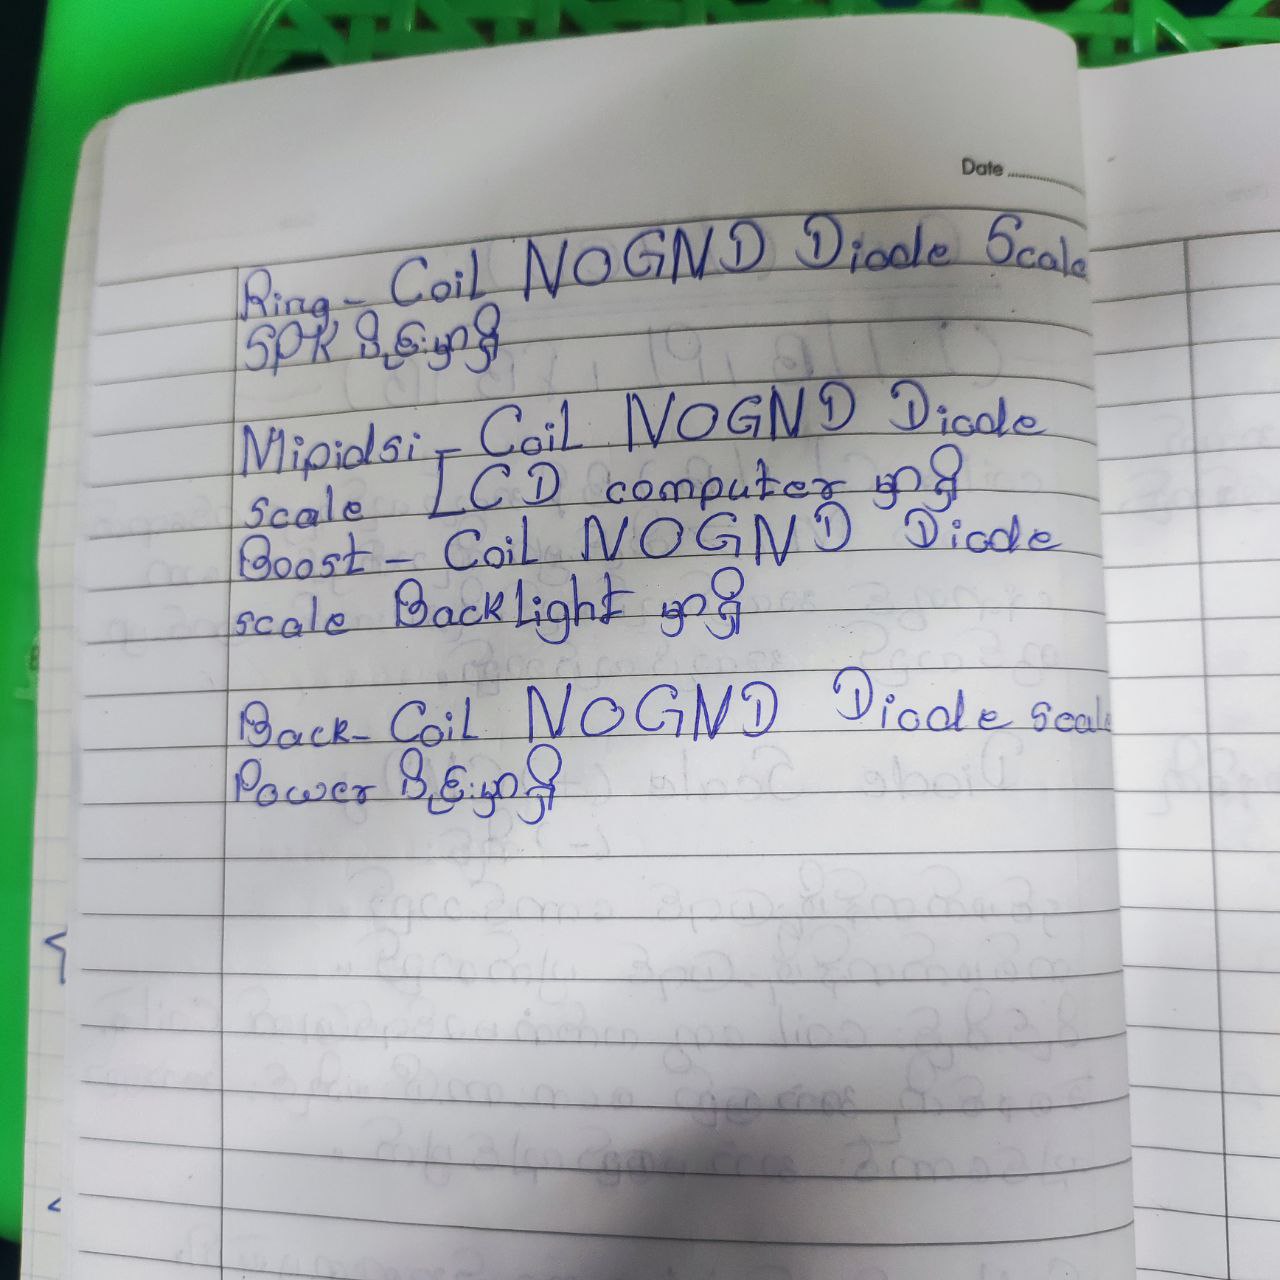 Date
Ring - Coil NOGND Diode Scale
SPK ပို့ငြိးမှာရှိ
Mipidsi - Coil NOGND Diode
scale LCD computer မှာရှိ
Boost - Coil NOGND Diode
scale Back Light မှာရှိ
Back - Coil NOGND Diode scale
Power ပို့ငြိးမှာရှိ